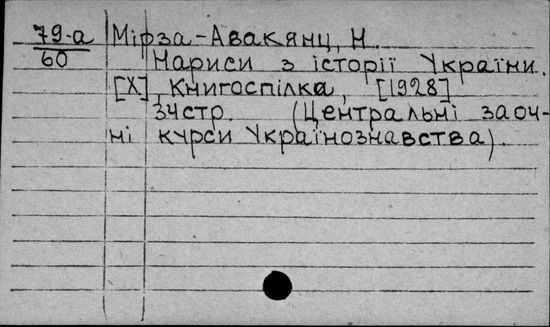 79-а Мірза-Авакянц, Н.
60 Нариси з історії України.
[Х], Книгоспілка, [1928]
34стр. (Центральні заоч-
ні курси Українознавства).